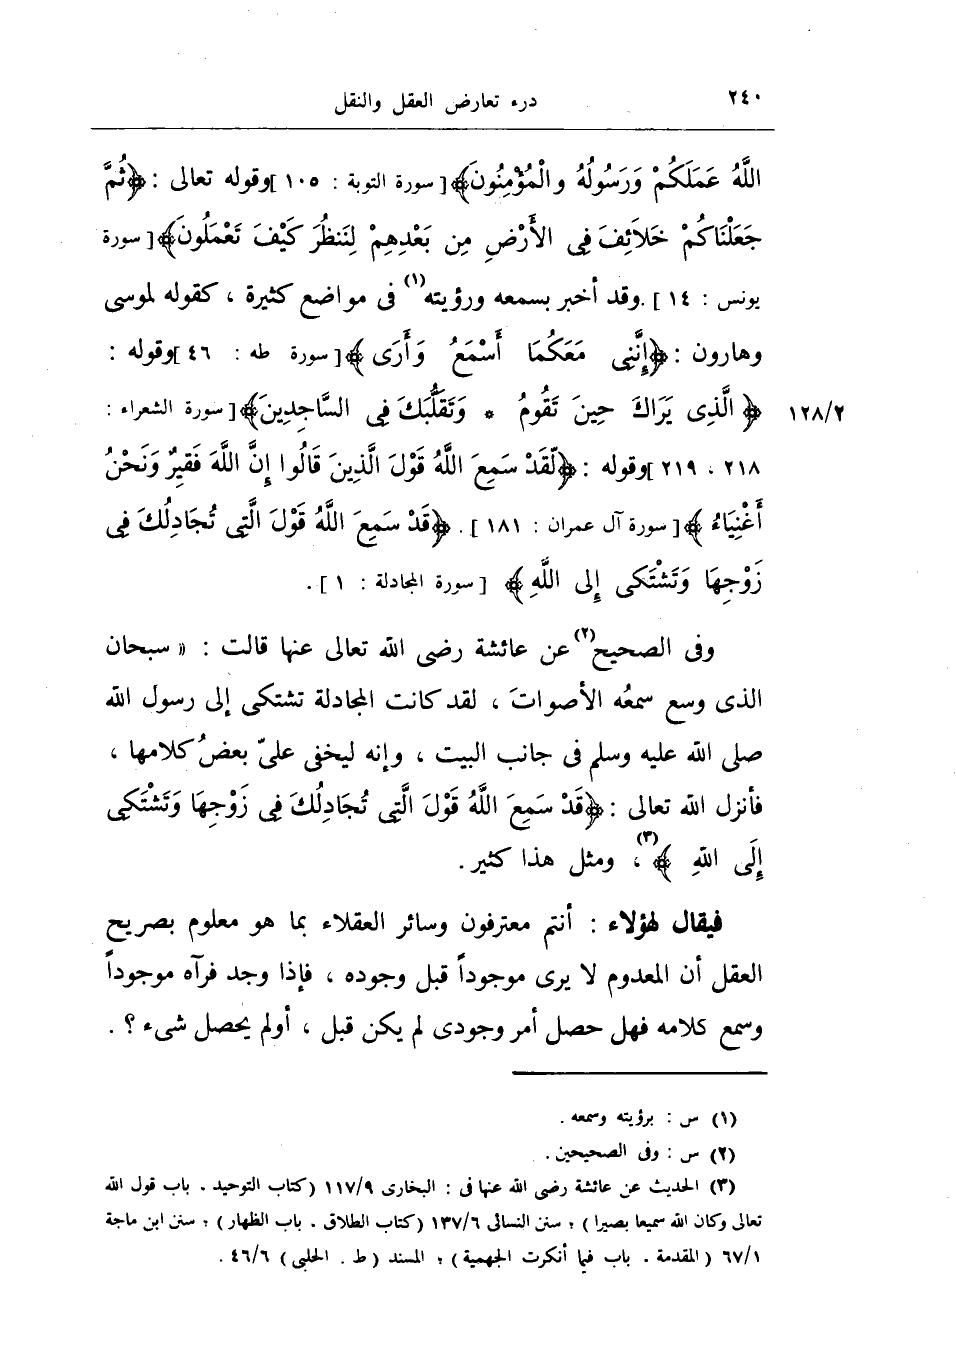 ٢٤٠ درء تعارض العقل والنقل
اللَّهُ عَمَلَكُمْ وَرَسُولُهُ والْمُؤْمِنُونَ﴾[ سورة التوبة : ١٠٥ ]وقوله تعالى : ﴿ثُمَّ
جَعَلْنَاكُمْ خَلَائِفَ فِى الأَرْضِ مِن بَعْدِهِمْ لِنَنظُرَ كَيْفَ تَعْمَلُونَ﴾[ سورة
يونس : ١٤ ] .وقد أخبر بسمعه ورؤيته(١) فى مواضع كثيرة ، كقوله لموسى
وهارون : ﴿إِنَّنِى مَعَكُمَا أَسْمَعُ وَأَرَى ﴾[ سورة طه : ٤٦ ]وقوله :
﴿ الَّذِى يَرَاكَ حِينَ تَقُومُ * وَتَقَلُّبَكَ فِى السَّاجِدِينَ﴾[ سورة الشعراء : ١٢٨/٢
٢١٨ ، ٢١٩ ]وقوله : ﴿لَّقَدْ سَمِعَ اللَّهُ قَوْلَ الَّذِينَ قَالُوا إِنَّ اللَّهَ فَقِيرٌ وَنَحْنُ
أَغْنِيَاءُ ﴾[ سورة آل عمران : ١٨١ ] . ﴿قَدْ سَمِعَ اللَّهُ قَوْلَ الَّتِى تُجَادِلُكَ فِى
زَوْجِهَا وَتَشْتَكى إِلى اللَّهِ ﴾ [ سورة المجادلة : ١ ] .
وفى الصحيح(٢)عن عائشة رضى الله تعالى عنها قالت : « سبحان
الذى وسع سمعُه الأصواتَ ، لقد كانت المجادلة تشتكى إلى رسول الله
صلى الله عليه وسلم فى جانب البيت ، وإنه ليخفى علىّ بعضُ كلامها ،
فأنزل الله تعالى : ﴿قَدْ سَمِعَ اللَّهُ قَوْلَ الَّتِى تُجَادِلُكَ فِى زَوْجِهَا وَتَشْتَكِى
إِلَى اللهِ ﴾(٣)، ومثل هذا كثير .
فيقال لهؤلاء : أنتم معترفون وسائر العقلاء بما هو معلوم بصريح
العقل أن المعدوم لا يرى موجوداً قبل وجوده ، فإذا وجد فرآه موجوداً
وسمع كلامه فهل حصل أمر وجودى لم يكن قبل ، أولم يحصل شىء ؟ .
(١) س : برؤيته وسمعه .
(٢) س : وفى الصحيحين .
(٣) الحديث عن عائشة رضى الله عنها فى : البخارى ١١٧/٩ (كتاب التوحيد . باب قول الله
تعالى وكان الله سميعا بصيرا ) ؛ سنن النسائى ١٣٧/٦ (كتاب الطلاق . باب الظهار) ؛ سنن ابن ماجة
٦٧/١ ( المقدمة . باب فيما أنكرت الجهمية ) ؛ المسند ( ط . الحلبى ) ٤٦/٦ .